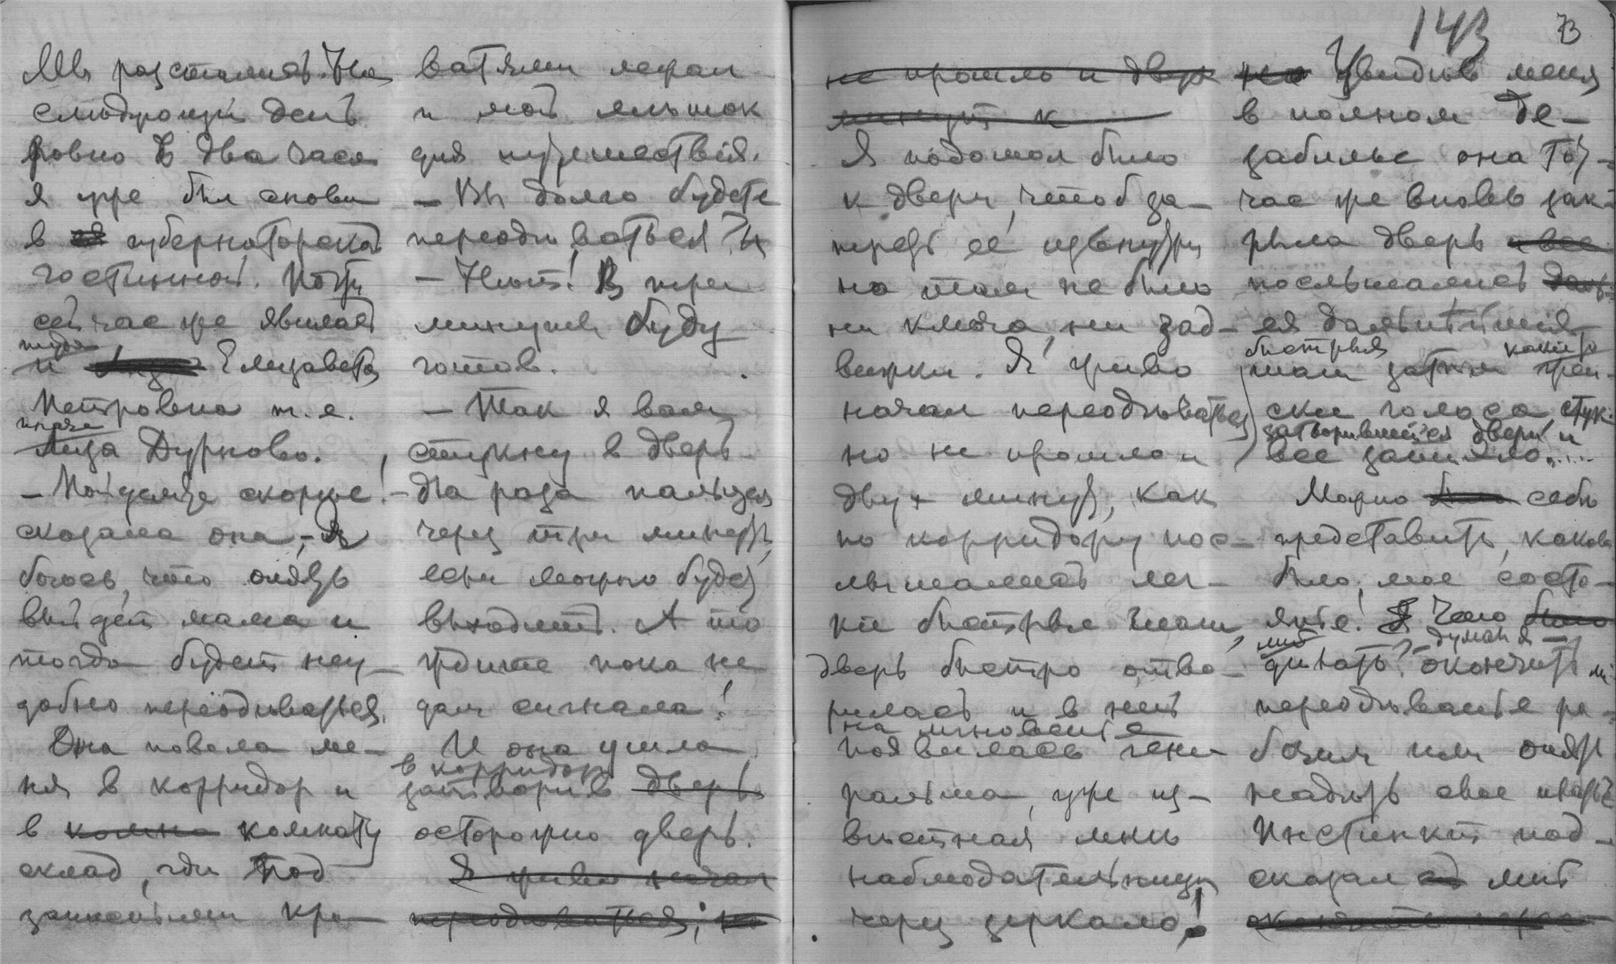 Мы разстались. На
слѣдующій день
ровно в два часа
я уже был снова
в губернаторской
гостинной. Почти
сейчас же явилась
туда
и Елизавета
Петровна т.е.
иначе
Лиза Дурново.
– Пойдемте скорѣе!
сказала она, – я
боюсь, что опять
выйдет мама и
тогда будет неу-
добно переодѣваться.
Она повела ме-
ня в корридор и
в комна комнату
склад, гдѣ под
занятыми кро-
ватями лежал
и мой мѣшок
для путешествія.
– Вы долго будете
переодѣваться?
– Нѣт! В три
минуты буду
готов.
– Так я вам
стукну в дверь
два раза пальцем
через три минуты,
если можно будет
выходить. А то
ждите пока не
дам сигнала!
И она ушла
в корридор
затворив дверь
осторожно дверь.
Я живо начал
переодѣваться; но
не прошло и двух
минут к
Я подошол было
к двери, чтоб за-
переть её извнутри
но там не было
ни ключа, ни зад-
вижки. Я живо
начал переодѣваться
но не прошло и
двух минут, как
по корридору пос-
лышались лег-
кіе быстрые шаги,
дверь быстро отво-
рилась и в ней
на мгновеніе
появилась гене-
ральша, уже из-
вѣстная мнѣ
наблюдательница
через зеркало!
143 73
но Увидѣв меня
в полном де-
забилье она тот-
час же вновь зак-
рыла дверь и все
послышались
ея дальнѣйшія
быстрые какіе то
шаги затѣм жен-
скіе голоса стук
затворившейся двери и
все затихло....
Можно было себѣ
представить, каково
было мое состо-
яніе! Я Что было
мнѣ думал я –
дѣлать? окончить ли
переодѣванье ра-
бочим или опять
надѣть свое платье
Инстинкт под-
сказал мнѣ